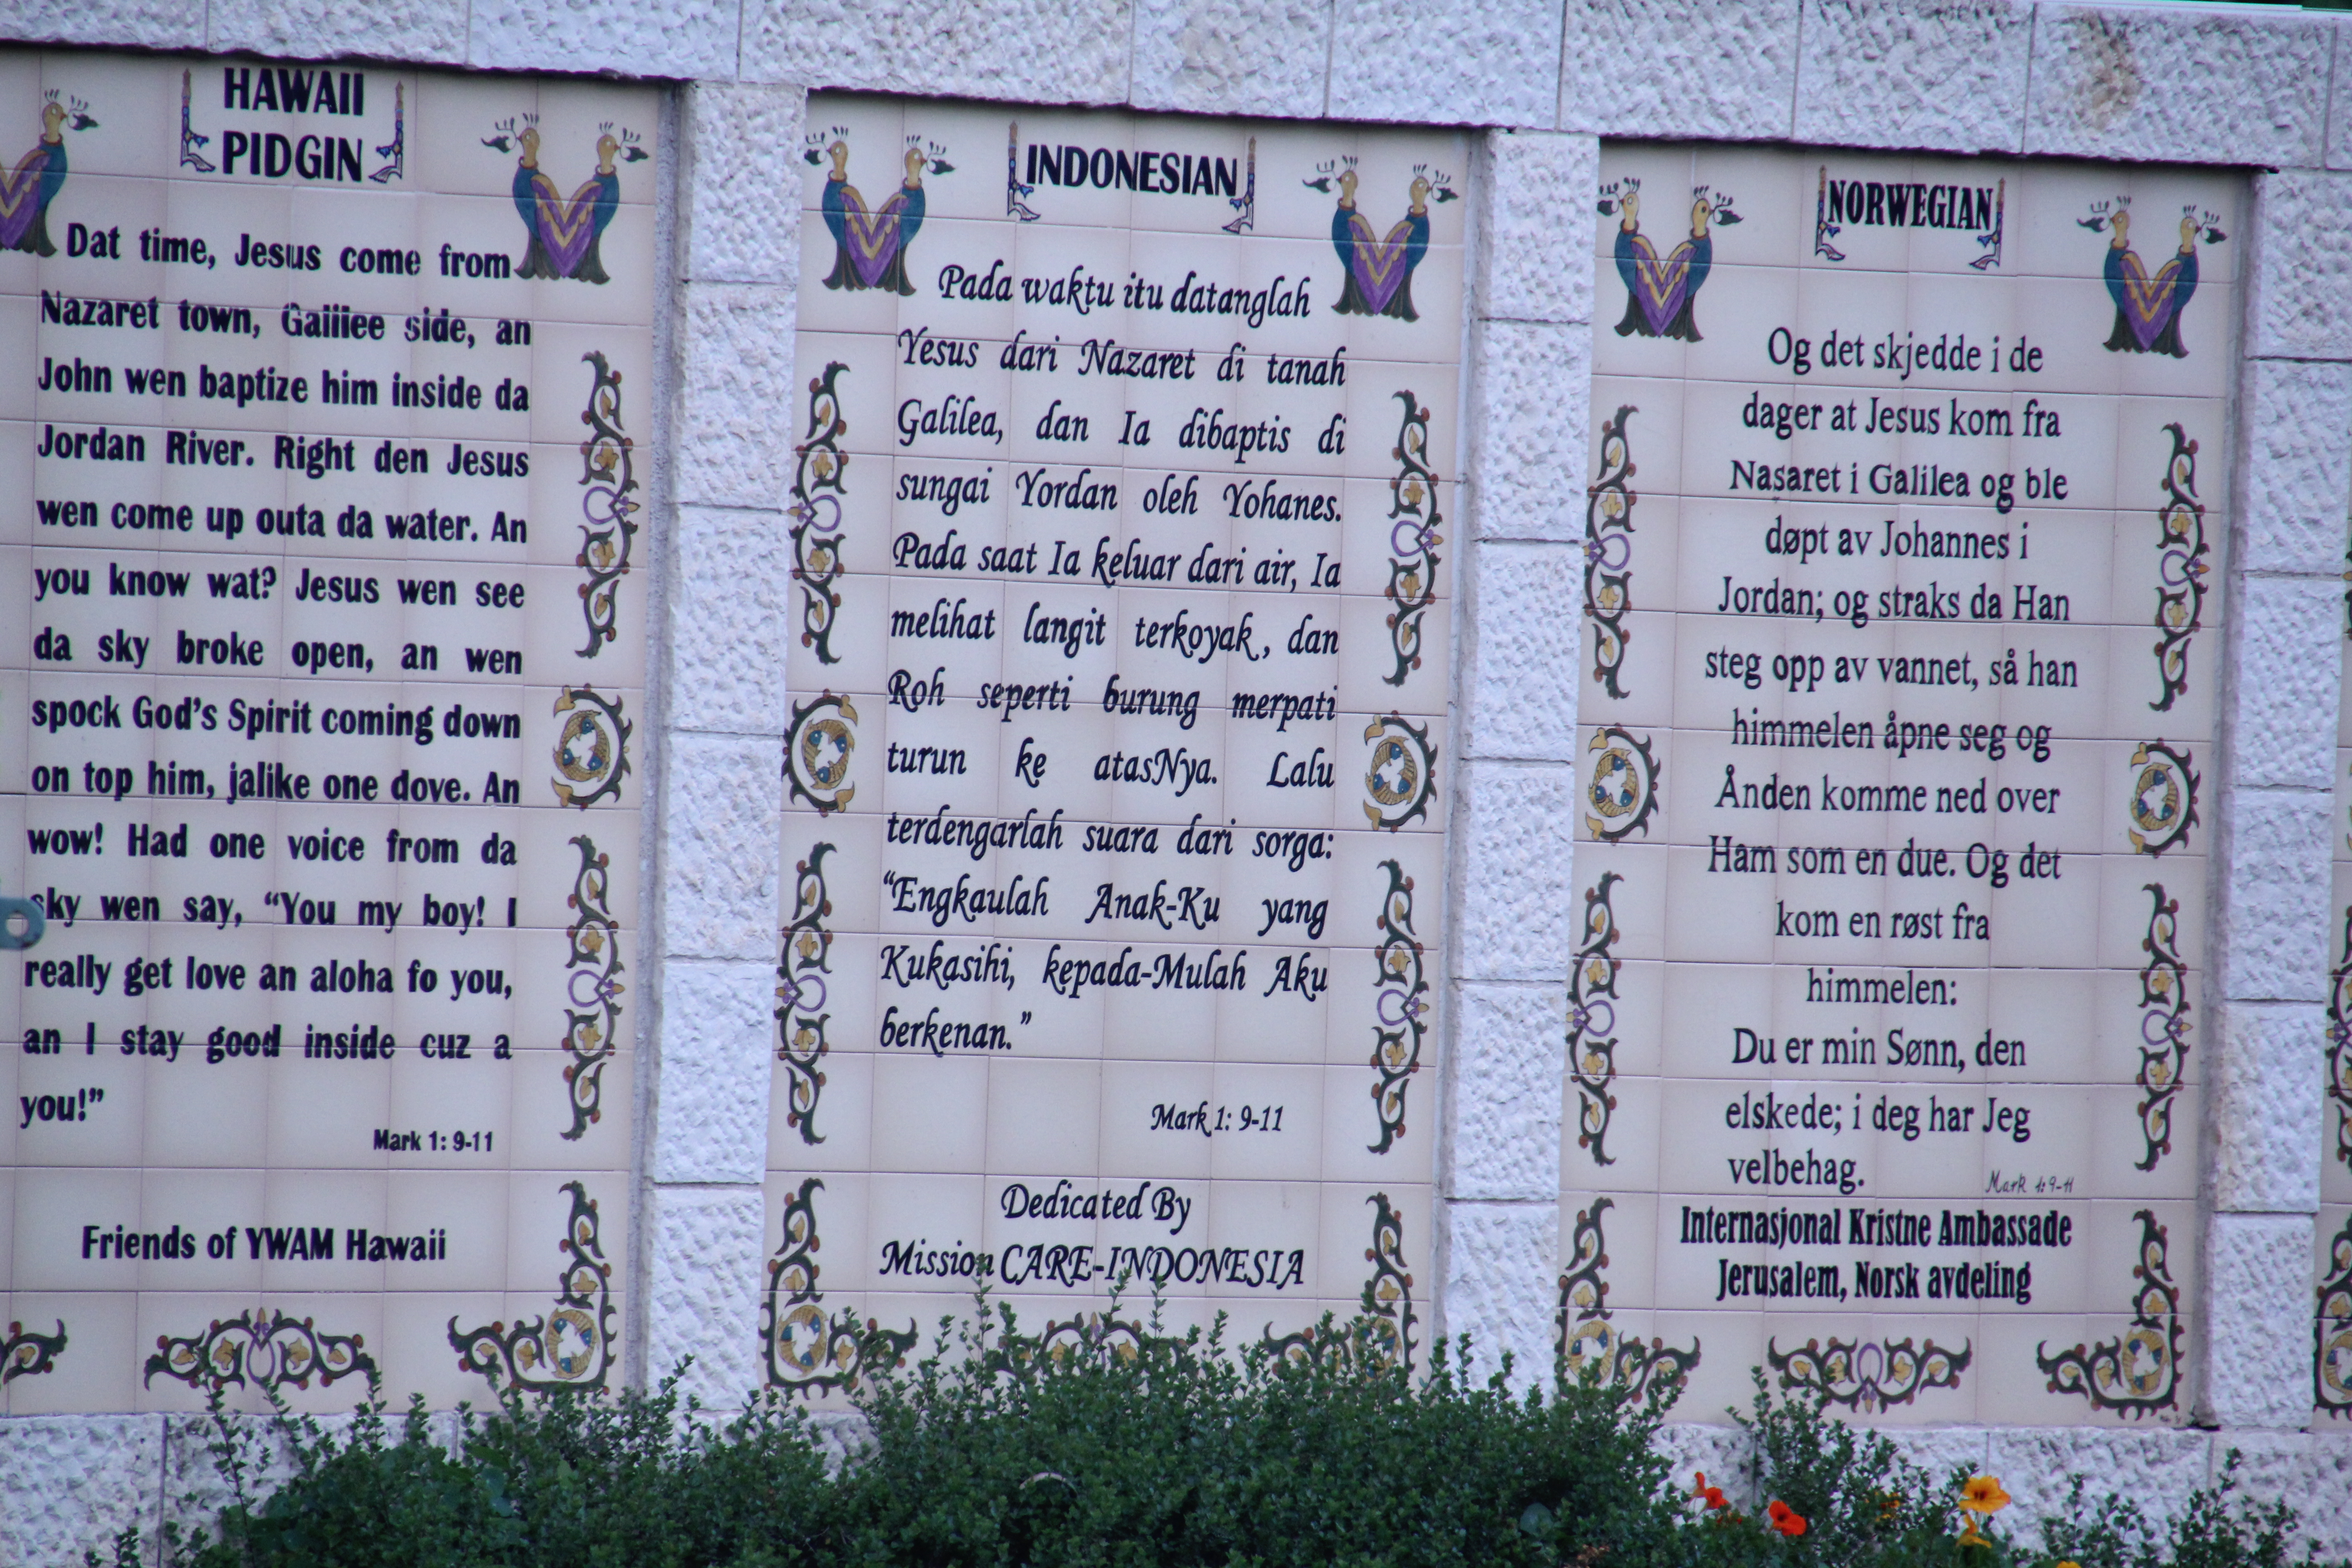 HAWAII
PIDGIN
Dat time, Jesus come from
Nazaret town, Galilee side, an
John wen baptize him inside da
Jordan River. Right den Jesus
wen come up outa da water. An
you know wat? Jesus wen see
da sky broke open, an wen
spock God's Spirit coming down
on top him, jalike one dove. An
wow! Had one voice from da
sky wen say, “You my boy! I
really get love an aloha fo you,
an I stay good inside cuz a
you!”
Mark 1: 9-11
Friends of YWAM Hawaii
INDONESIAN
Pada waktu itu datanglah
Yesus dari Nazaret di tanah
Galilea, dan Ia dibaptis di
sungai Yordan oleh Yohanes.
Pada saat Ia keluar dari air, Ia
melihat langit terkoyak, dan
Roh seperti burung merpati
turun ke atasNya. Lalu
terdengarlah suara dari sorga:
“Engkaulah Anak-Ku yang
Kukasihi, kepada-Mulah Aku
berkenan.”
Mark 1: 9-11
Dedicated By
Mission CARE-INDONESIA
NORWEGIAN
Og det skjedde i de
dager at Jesus kom fra
Nasaret i Galilea og ble
døpt av Johannes i
Jordan; og straks da Han
steg opp av vannet, så han
himmelen åpne seg og
Ånden komme ned over
Ham som en due. Og det
kom en røst fra
himmelen:
Du er min Sønn, den
elskede; i deg har Jeg
velbehag.
Mark 1:9-11
Internasjonal Kristne Ambassade
Jerusalem, Norsk avdeling